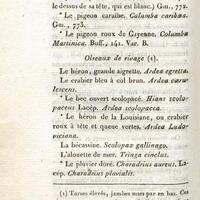 le dessus de sa tête, qui est blanc.) Gm., 772.
* Le pigeon caraïbe. Columba caribæa.
Gm., 773.
* Le pigeon roux de Cayenne. Columba
Martinica. Buff., 141. Var. B.
Oiseaux de rivage (1).
Le héron, grande aigrette. Ardea egretta.
Le héron bleu à col brun. Ardea cœru-
lescens.
* Le bec ouvert scolopacé. Hians scolo-
paceus Lacép. Ardea scolopacea.
* Le héron de la Louisiane, ou crabier
roux à tête et queue vertes. Ardea Ludo-
viciana.
La bécassine. Scolopax gallinago.
L'alouette de mer. Tringa cinclus.
* Le pluvier doré. Charadrius aureus. La-
cép. Charadrius pluvialis.
(1) Tarses élevés, jambes nues par en bas. Ces